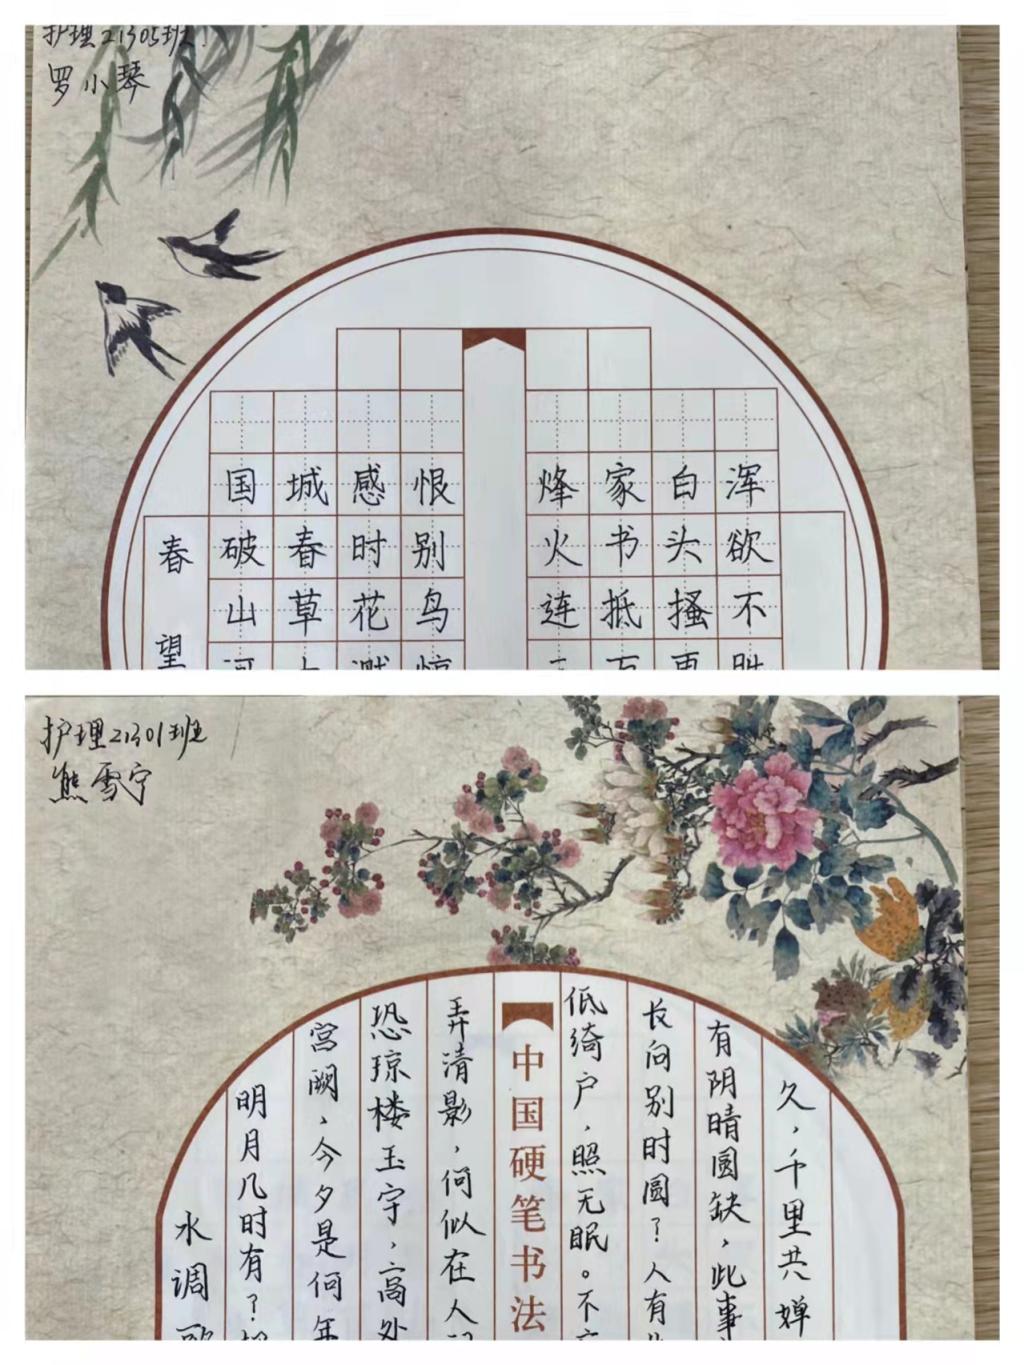 护理21305班
罗小琴
春望
国破山河
城春草
感时花溅
恨别鸟惊
烽火连
家书抵万
白头搔更
浑欲不胜
护理21301班
熊雪宁
水调歌
明月几时有？
宫阙、今夕是何年
恐琼楼玉宇，高处
弄清影，何似在人
中国硬笔书法
低绮户，照无眠。不
长向别时圆？人有
有阴晴圆缺，此事
久，千里共婵